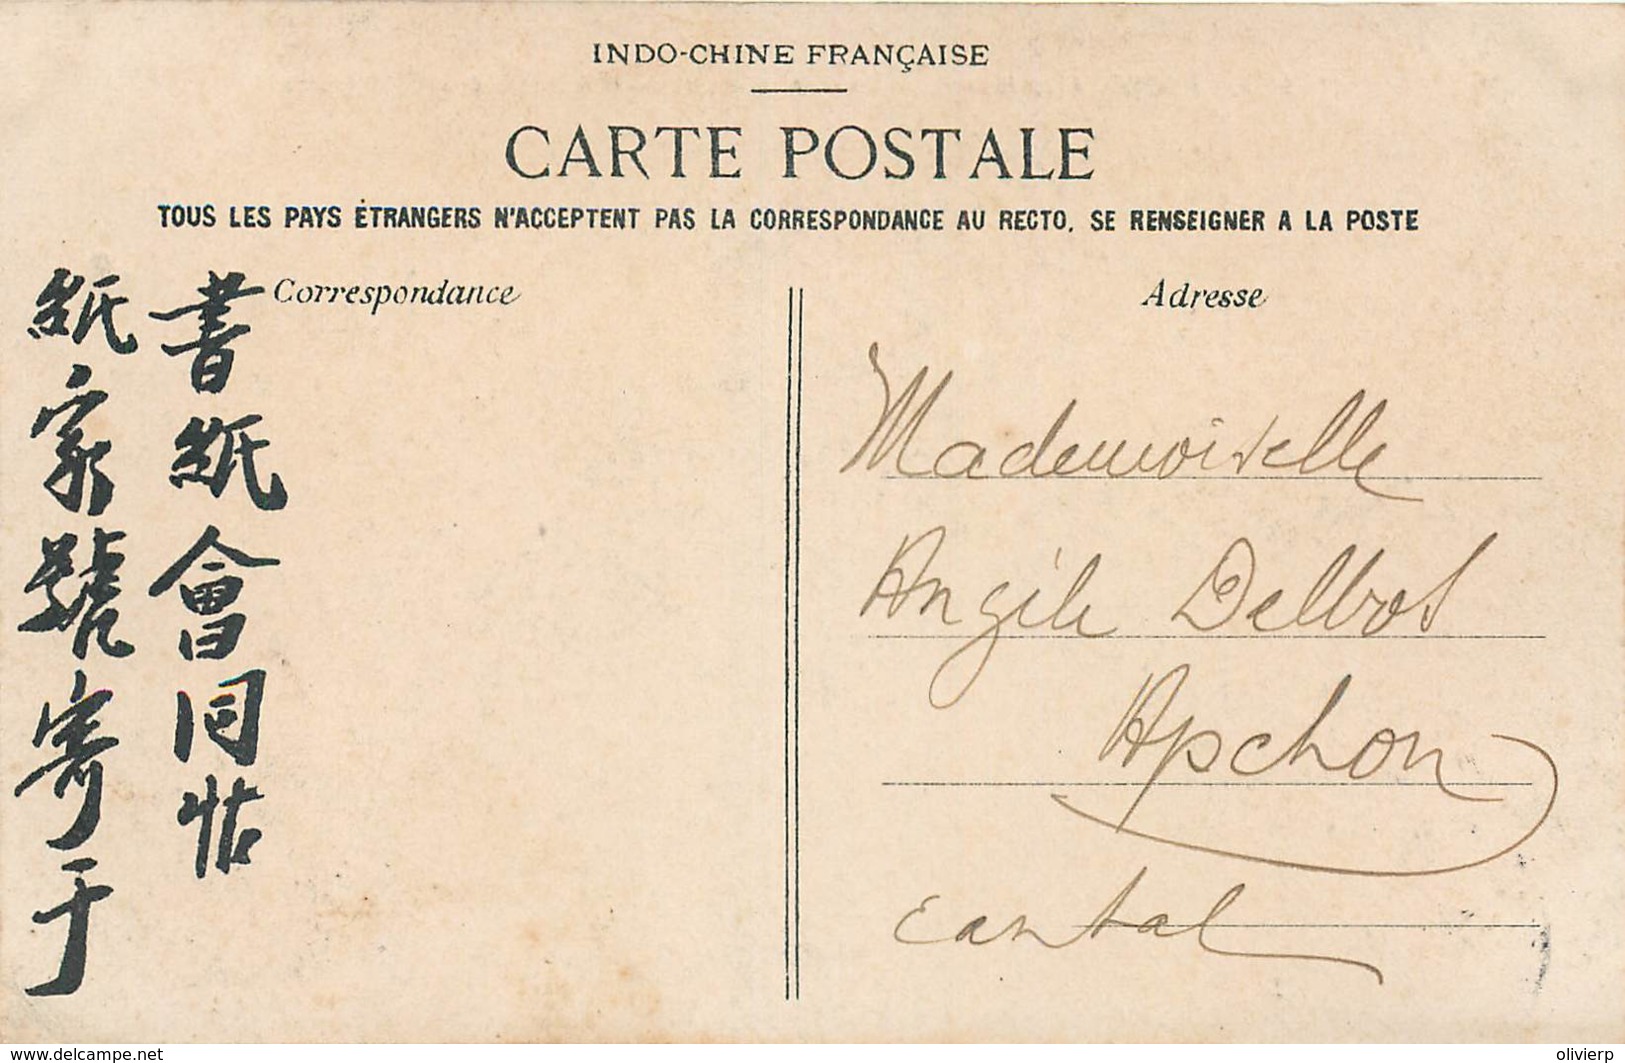 INDO-CHINE FRANÇAISE
CARTE POSTALE
TOUS LES PAYS ÉTRANGERS N'ACCEPTENT PAS LA CORRESPONDANCE AU RECTO, SE RENSEIGNER A LA POSTE
Correspondance
書紙會同
紙家號寄于
Adresse
Mademoiselle
Angèle Delbos
Apchon
Cantal
www.delcampe.net
olivierp